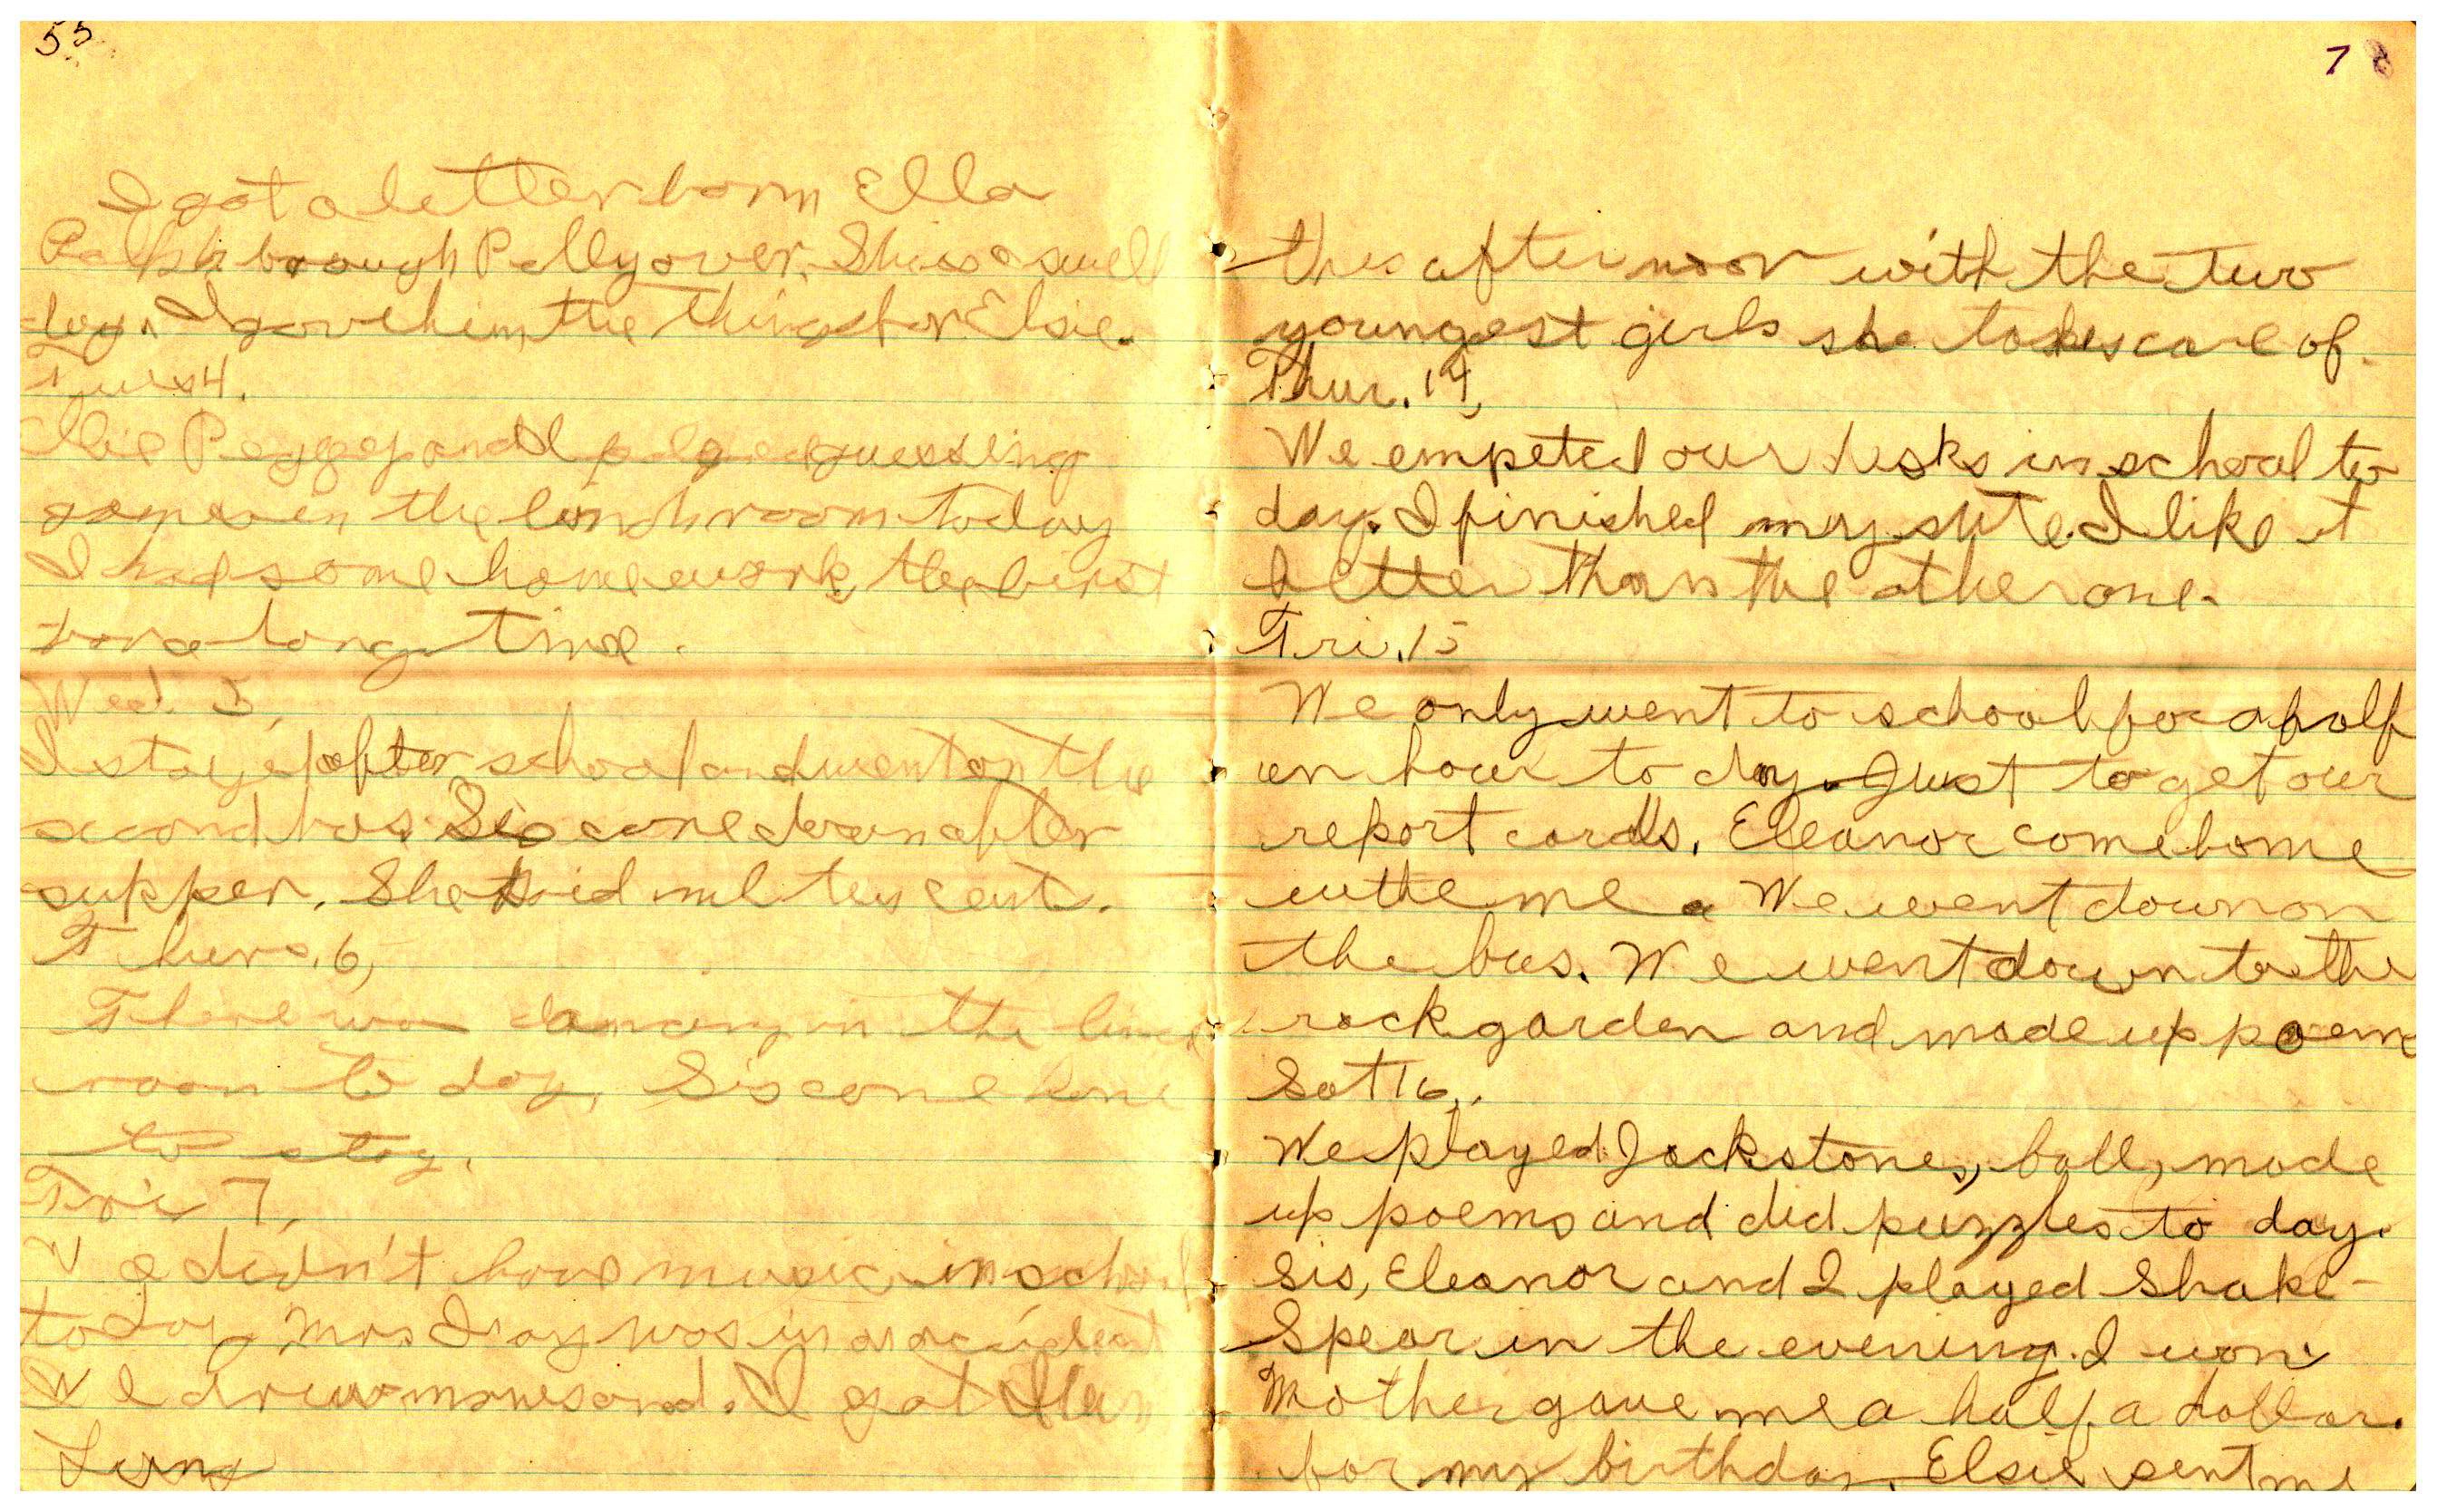 55
I got a letter from Ella
Ralph brough Polly over. She is a swell
dog. I gave him the things for Elsie.
Tues 4.
Peggy and I played guessing
games in the lunch room today
I had some homework, the first
for a long time.
Wed. 5,
I stayed after school and went on the
second bus. Sis come down after
supper. She paid me ten cent.
Thurs. 6,
There was dancing in the lunch
room to day. Sis come home
to stay.
Fri 7,
We didn't have music in school
today. Mrs. was in an accident
We drew names and. I got
78
this afternoon with the two
youngest girls she takes care of.
Thur. 14,
We empeted our desks in school to
day. I finished my suite. I like it
better than the other one.
Fri. 15
We only went to school for a half
an hour to day. Just to get our
report cards. Eleanor come home
withe me. We went down on
the bus. We went down to the
rock garden and made up poems
Sat 16,.
We played Jackstones, ball, made
up poems and did puzzles to day.
Sis, Eleanor and I played Shake-
Spear in the evening. I won.
Mother gave me a half a dollar.
for my birthday. Elsie sent me